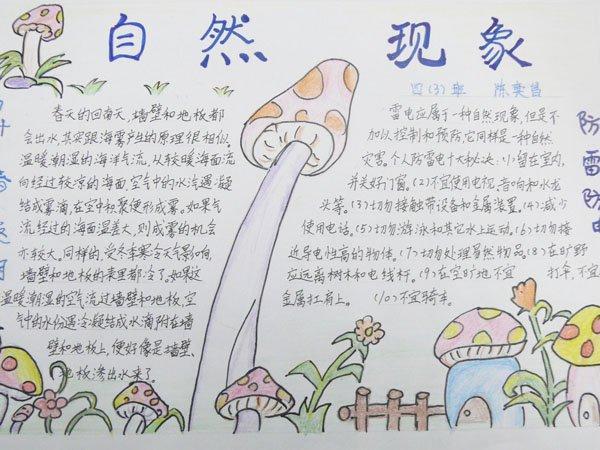 自然现象
四(3)班 陈奕昌
春天的回南天,墙壁和地板都
会出水,其实跟海雾产生的原理很相似。
温暖潮湿的海洋气流,从较暖海面流
向经过较凉的海面,空气中的水汽遇冷凝
结成雾滴,在空中积聚便形成雾。如果气
流经过的海面温差大,则成雾的机会
亦较大。同样的,受冬季寒冷天气影响,
墙壁和地板的表里都冷了。如果这
温暖潮湿的空气流过墙壁和地板,空
气中的水份遇冷凝结成水滴附在墙
壁和地板上,便好像是墙壁、
地板渗出水来了。
雷电应属于一种自然现象,但是不
加以控制和预防,它同样是一种自然
灾害。个人防雷电十大秘决:小留在室内,
并关好门窗。(2)不宜使用电视、音响和水龙
头等。(3)切勿接触带设备和金属装置。(4)减少
使用电话。(5)切勿游泳和其它水上运动。(6)切勿接
近导电性高的物体。(7)切勿处理易燃物品。(8)在旷野
应远离树木和电线杆。(9)在空旷地不宜打伞,不宜
金属扛肩上。(10)不宜骑车。
防雷防电